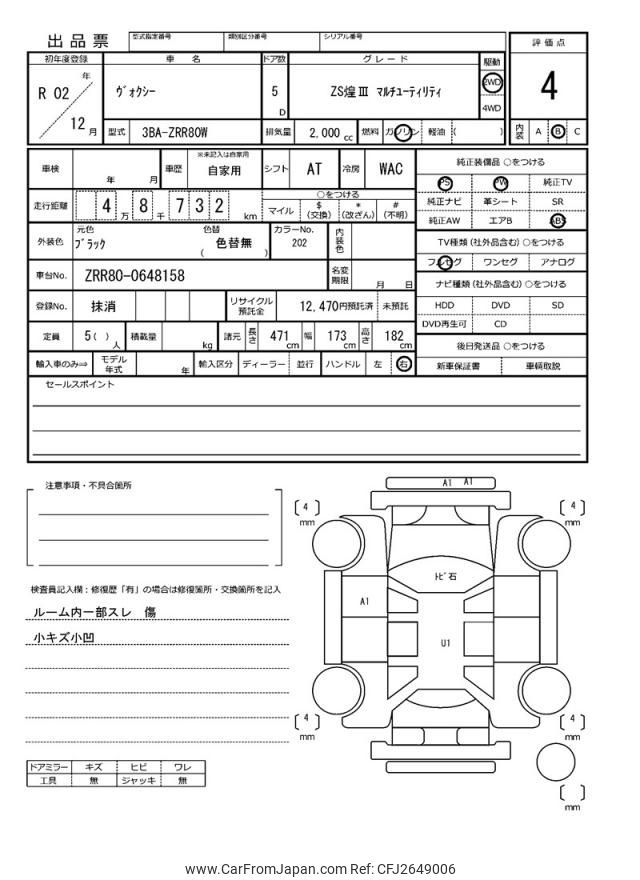 出品票
型式指定番号 類別区分番号 シリアル番号
評価点
初年度登録 車名 ドア数 グレード 駆動
R 02 年
ヴォクシー
5 D
ZS煌Ⅲ マルチユーティリティ
2WD
4WD
4
12 月
型式 3BA-ZRR80W 排気量 2,000 cc 燃料 ガソリン 軽油 ( )
内装 A B C
車検 年 月 車歴 ※未記入は自家用 自家用 シフト AT 冷房 WAC
純正装備品 ○をつける
PS PW 純正TV
純正ナビ 革シート SR
純正AW エアB ABS
走行距離 4 万 8 千 7 3 2 km
○をつける
マイル $(交換) *(改ざん) #(不明)
外装色 元色 ブラック 色替 色替無 ( ) カラーNo. 202 内装色
TV種類(社外品含む) ○をつける
フルセグ ワンセグ アナログ
車台No. ZRR80-0648158 名変期限 月 日
ナビ種類(社外品含む) ○をつける
HDD DVD SD
DVD再生可 CD
登録No. 抹消 リサイクル預託金 12,470円預託済 未預託
定員 5( )人 積載量 kg 諸元 長さ 471 cm 幅 173 cm 高さ 182 cm
後日発送品 ○をつける
新車保証書 車輌取説
輸入車のみ⇒ モデル年式 年 輸入区分 ディーラー 並行 ハンドル 左 右
セールスポイント
注意事項・不具合箇所
検査員記入欄:修復歴「有」の場合は修復箇所・交換箇所を記入
ルーム内一部スレ 傷
小キズ小凹
ドアミラー キズ ヒビ ワレ
工具 無 ジャッキ 無
A1 A1
[ 4 ] mm
[ 4 ] mm
トビ石
A1
U1
[ 4 ] mm
[ 4 ] mm
[ ] mm
www.CarFromJapan.com Ref: CFJ2649006